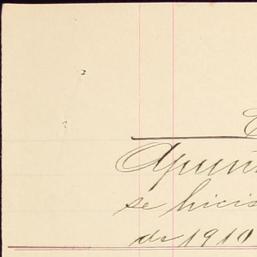 Apun
se hicie
de 1910